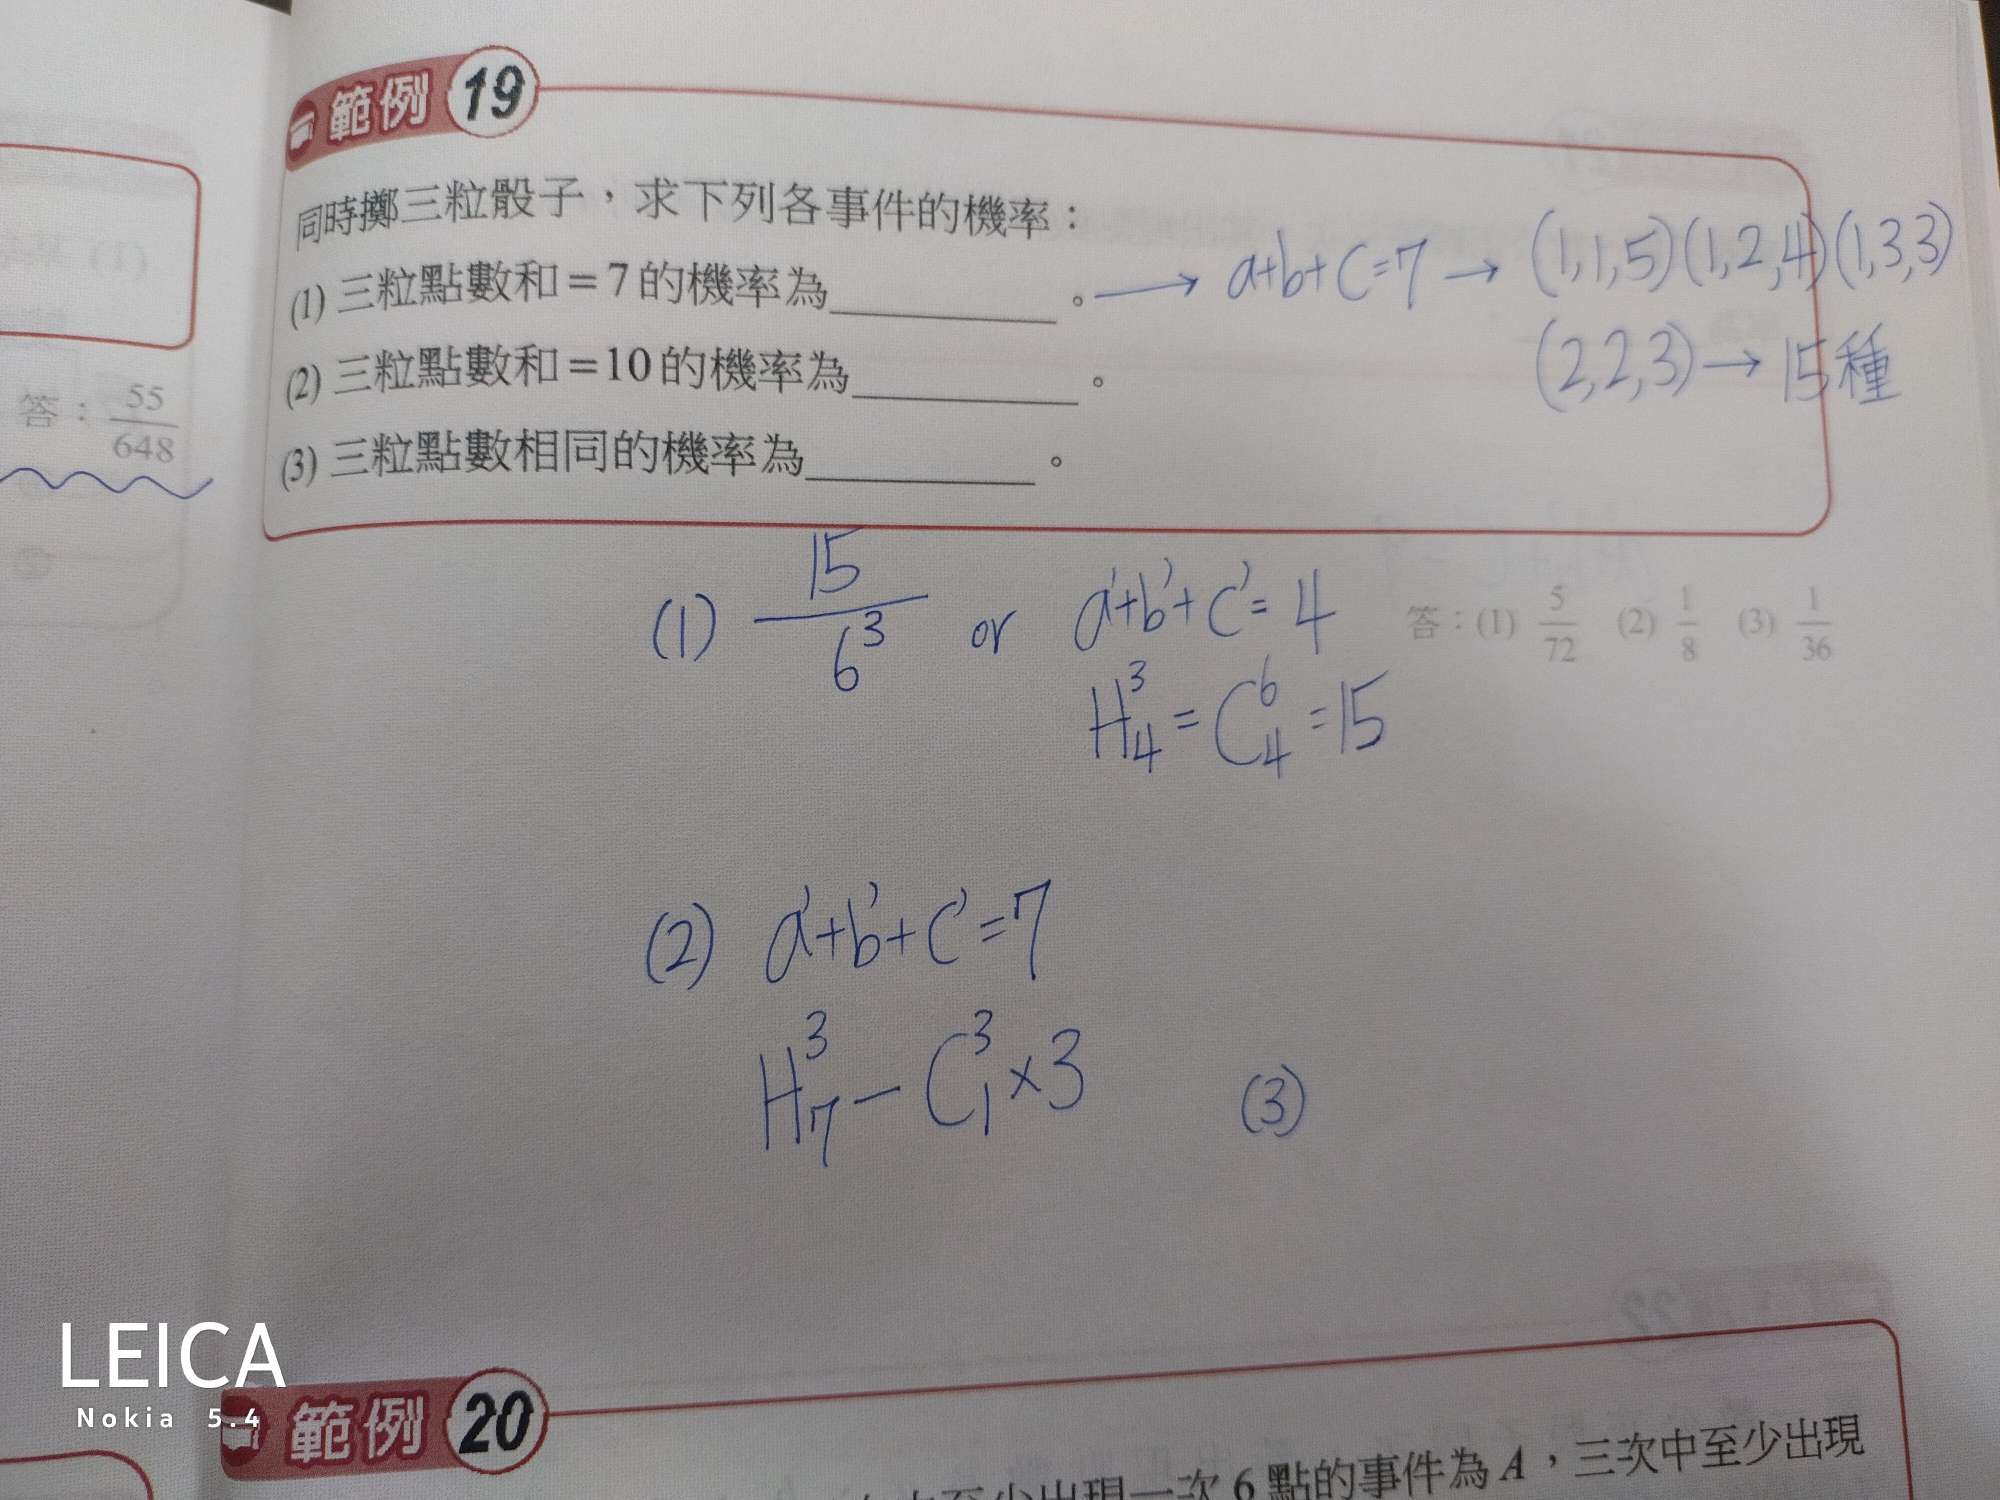 範例 19
同時擲三粒骰子，求下列各事件的機率：
(1) 三粒點數和=7的機率為________。→ a+b+c=7 → (1,1,5)(1,2,4)(1,3,3)
(2,2,3) → 15種
(2) 三粒點數和=10的機率為________。
(3) 三粒點數相同的機率為________。
答：55/648
答：(1) 5/72 (2) 1/8 (3) 1/36
(1) 15/6³ or a'+b'+c'=4
H³₄=C⁶₄=15
(2) a'+b'+c'=7
H³₇-C³₁×3
(3)
LEICA
Nokia 5.4
範例 20
至少出現一次6點的事件為A，三次中至少出現